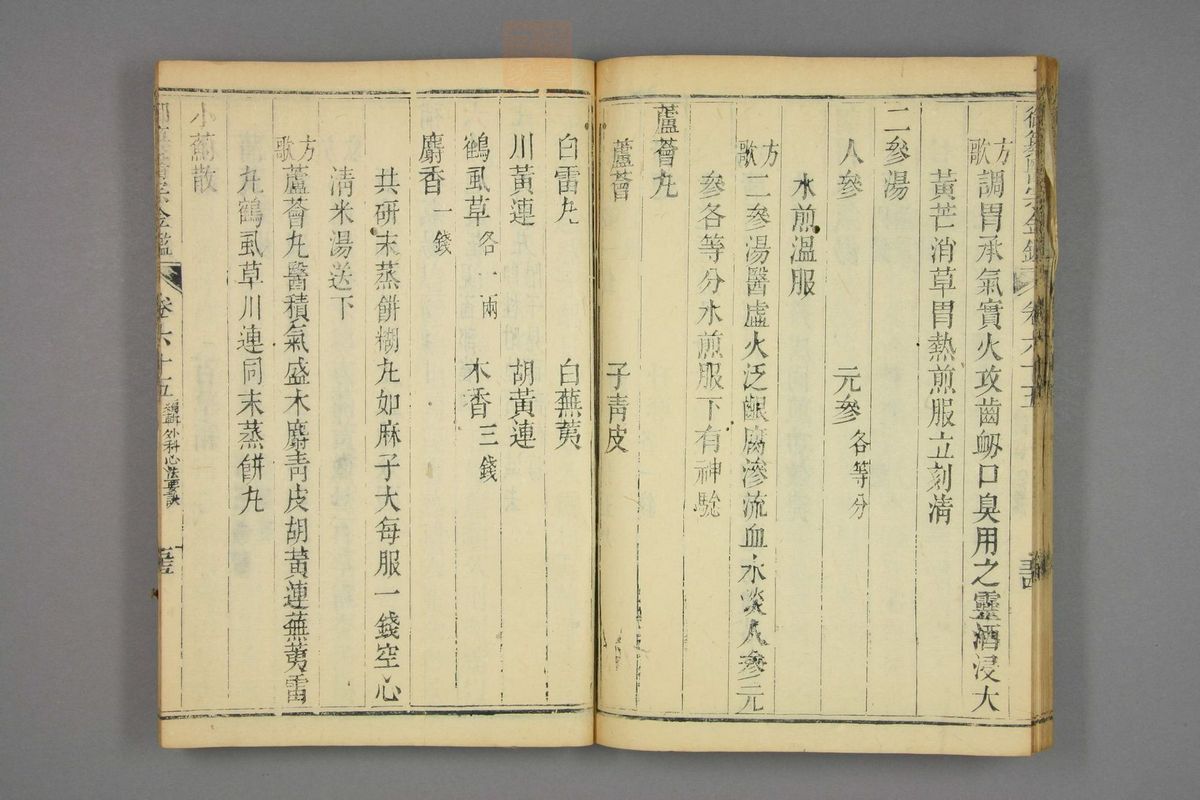 方歌調胃承氣實火攻齒衂口臭用之靈酒浸大
黃芒消草胃熱煎服立刻淸
二參湯
人參 元參各等分
水煎溫服
方歌二參湯醫虛火泛齦腐滲流血水淡人參元
參各等分水煎服下有神驗
蘆薈丸
蘆薈 子靑皮
白雷丸 白蕪荑
川黃連 胡黃連
鶴虱草各一兩 木香三錢
麝香一錢
共硏末蒸餅糊丸如麻子大每服一錢空心
淸米湯送下
方歌蘆薈丸醫積氣盛木麝靑皮胡黃連蕪荑雷
丸鶴虱草川連同末蒸餅丸
小薊散
金鑑 卷六十五 編輯外科心法要訣